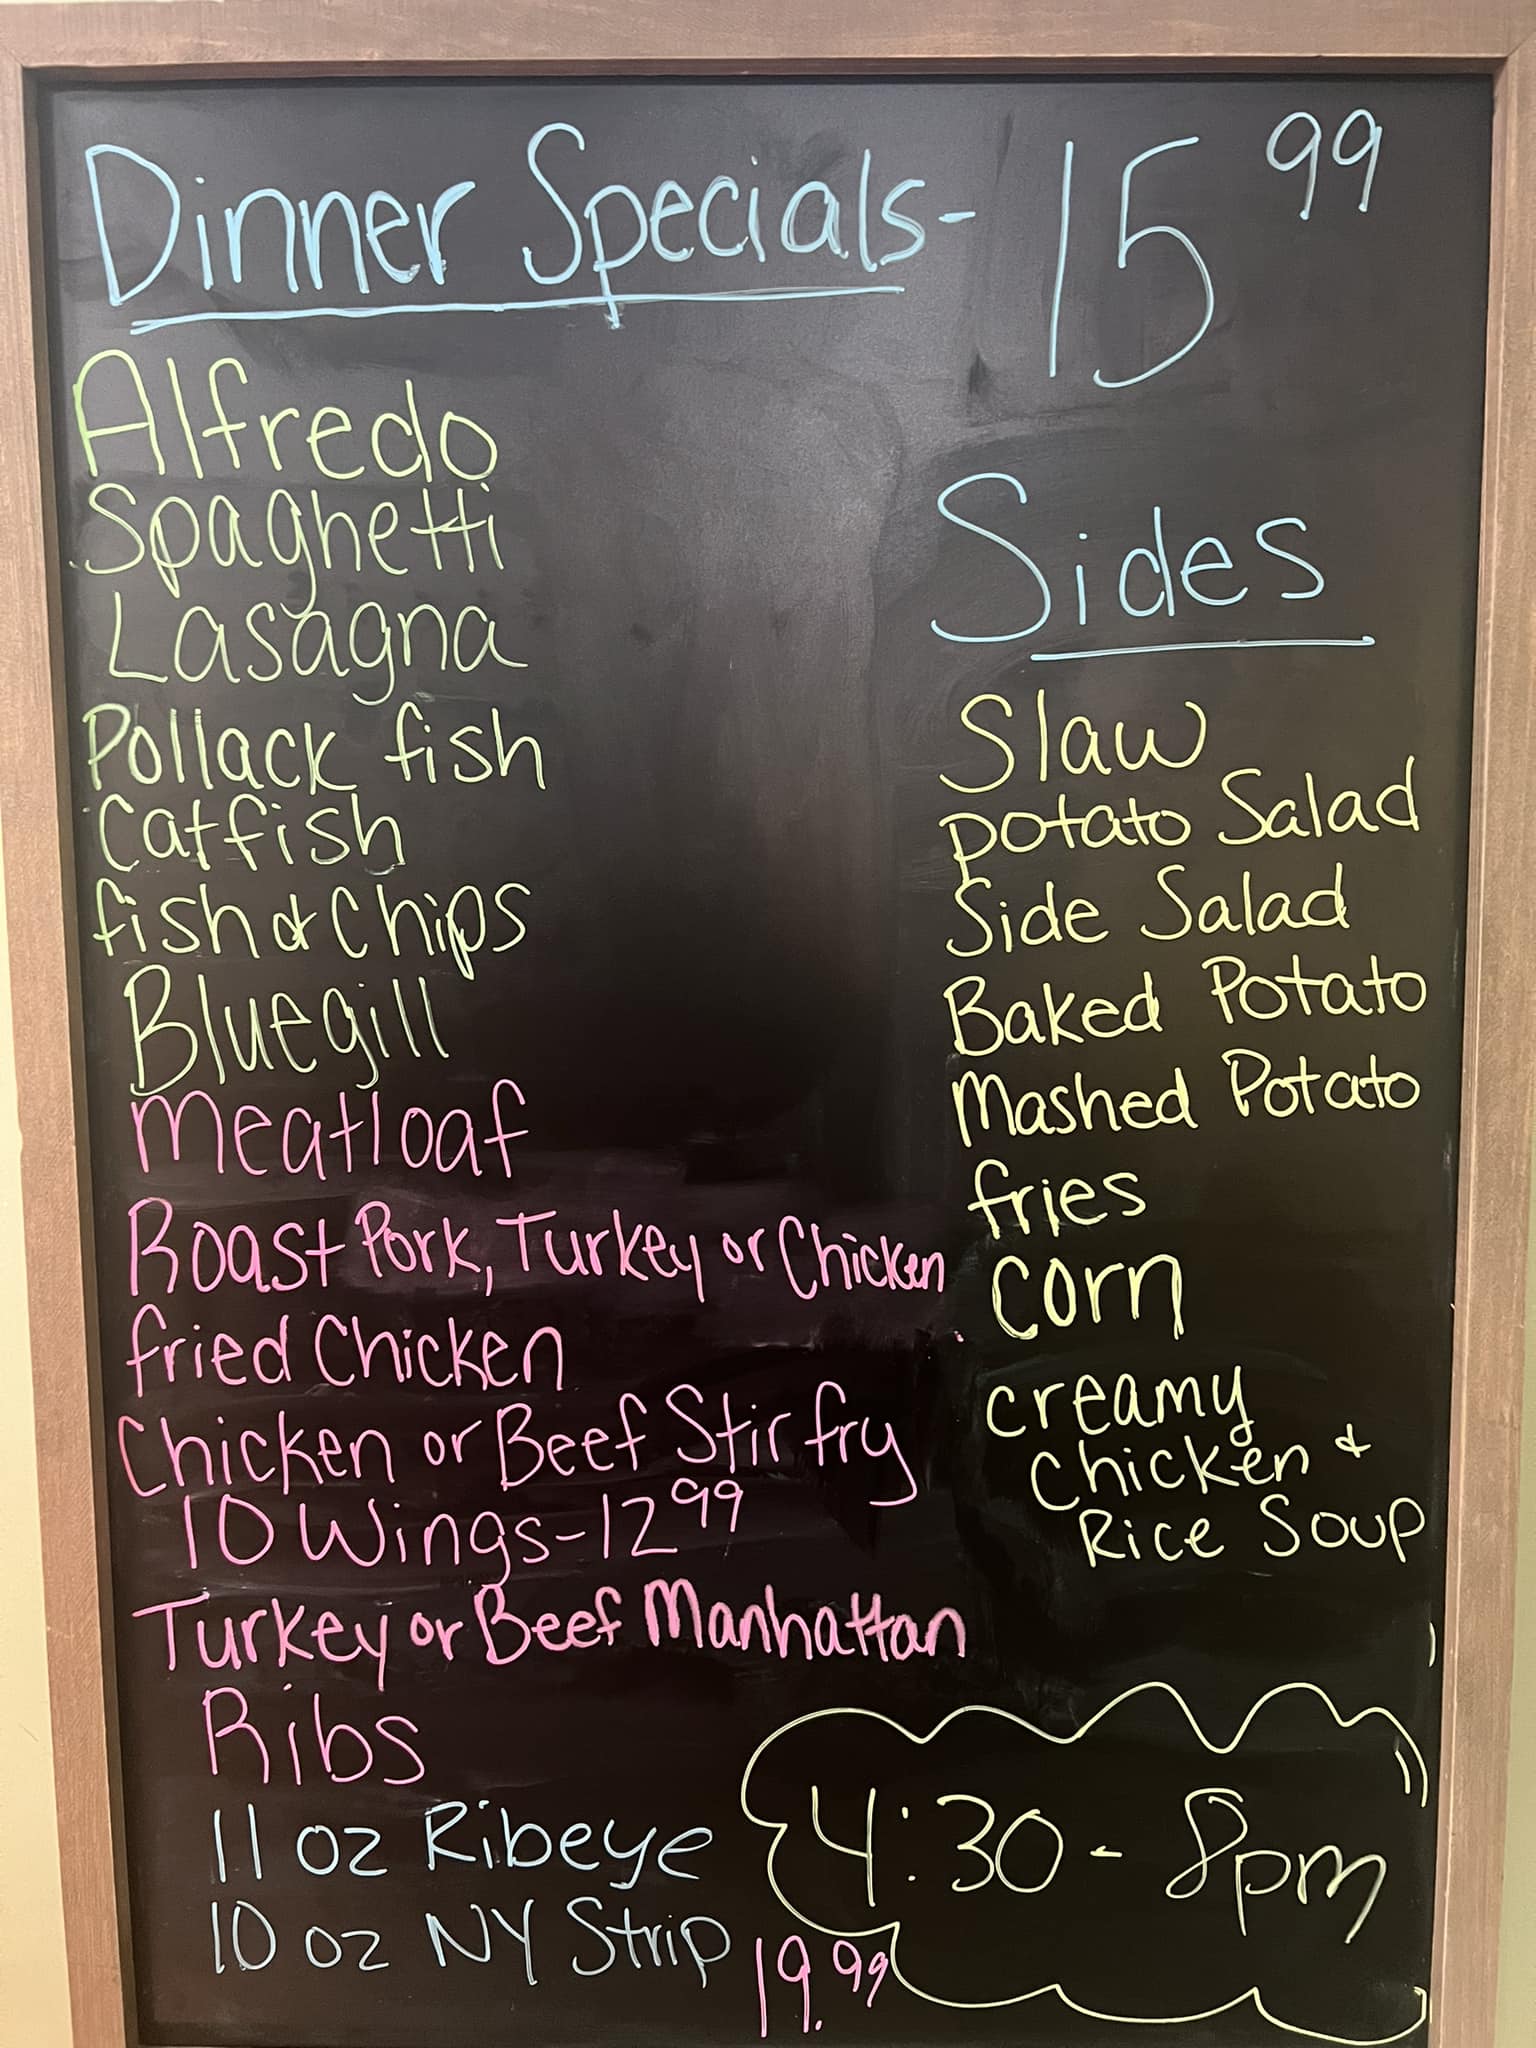 Dinner Specials- 15 99
Alfredo
Spaghetti
Lasagna
Pollack fish
Catfish
fish & Chips
Bluegill
Meatloaf
Roast Pork, Turkey or Chicken
fried Chicken
Chicken or Beef Stir fry
10 Wings-12 99
Turkey or Beef Manhattan
Ribs
11 oz Ribeye
10 oz NY Strip 19.99
Sides
Slaw
potato Salad
Side Salad
Baked Potato
Mashed Potato
fries
corn
creamy
Chicken &
Rice Soup
4:30 - 8pm